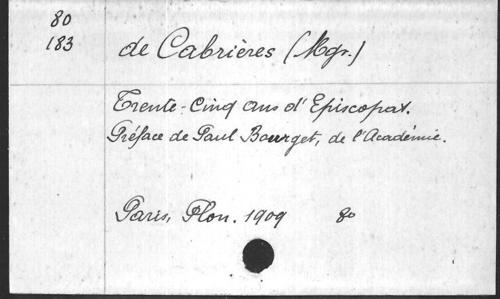 80
183
de Cabrières (Mgr.)
Trente-Cinq ans d'Episcopat.
Préface de Paul Bourget, de l'Académie.
Paris, Plon. 1909 8o